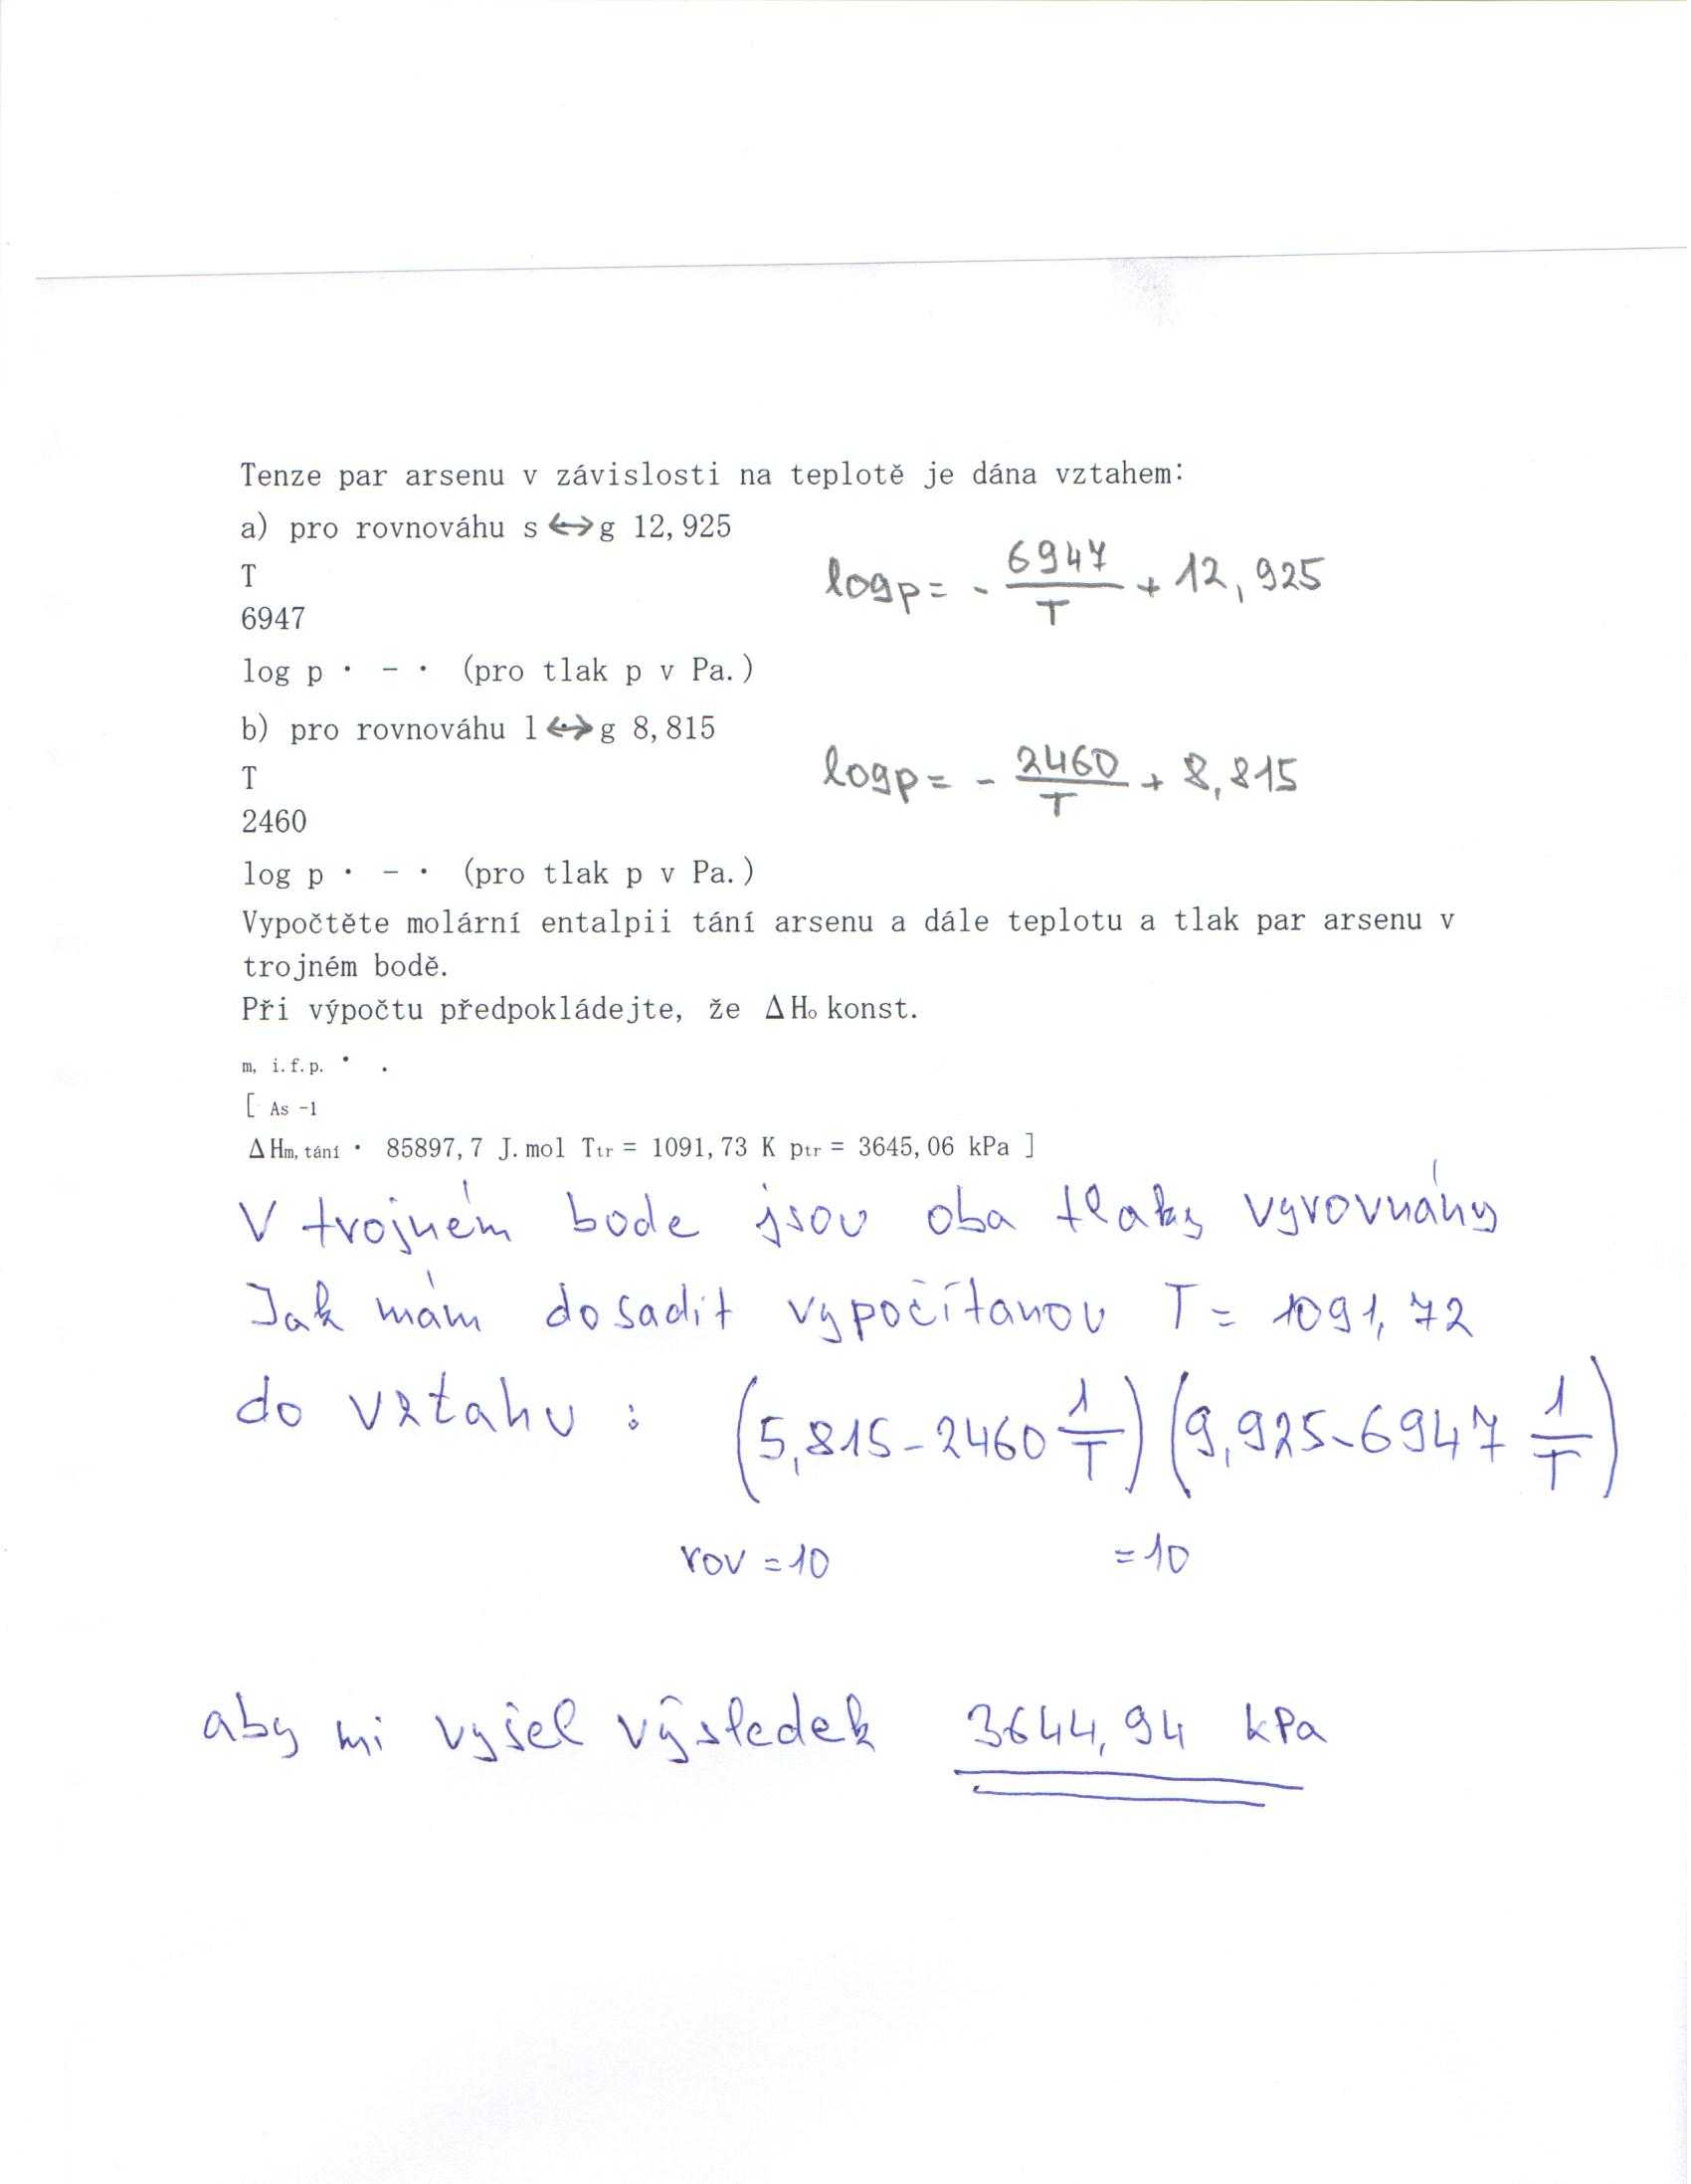 Tenze par arsenu v závislosti na teplotě je dána vztahem:
a) pro rovnováhu s ↔ g 12,925
T
6947
log p · - · (pro tlak p v Pa.)
log p = - 6947/T + 12,925
b) pro rovnováhu l ↔ g 8,815
T
2460
log p · - · (pro tlak p v Pa.)
log p = - 2460/T + 8,815
Vypočtěte molární entalpii tání arsenu a dále teplotu a tlak par arsenu v
trojném bodě.
Při výpočtu předpokládejte, že ΔHo konst.
m, i.f.p. · .
[ As -1
ΔHm, tání · 85897,7 J.mol Ttr = 1091,73 K ptr = 3645,06 kPa ]
V trojném bode jsou oba tlaky vyrovnány
Jak mám dosadit vypočítanou T = 1091,72
do vztahu : (5,815-2460 1/T) (9,925-6947 1/T)
rov =10 =10
aby mi vyšel výsledek 3644,94 kPa